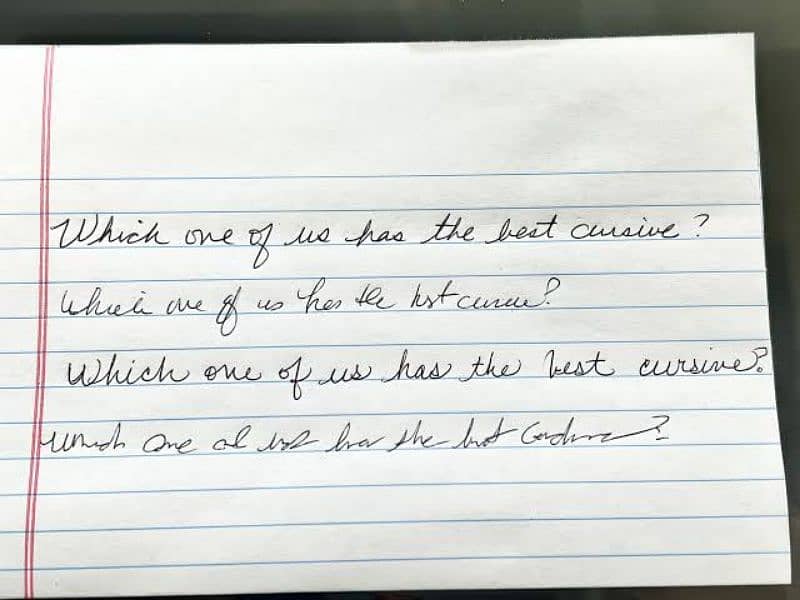 Which one of us has the best cursive?
Which one of us has the best cursive?
Which one of us has the best cursive?
Which one of us has the best